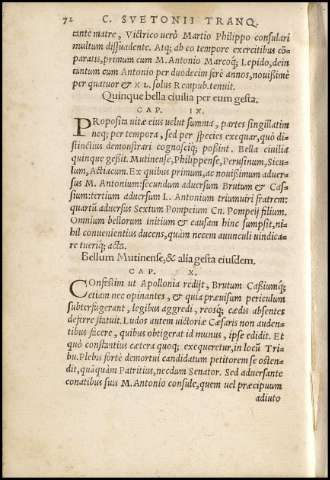 72 C. SVETONII TRANQ.
tante matre, Vitrico uerò Martio Philippo consulari
multum dissuadente. Atq; ab eo tempore exercitibus cõ-
paratis, primum cum M. Antonio Marcoq; Lepido, dein
tantum cum Antonio per duodecim ferè annos, nouissimè
per quatuor & XL. solus Rempub. tenuit.
Quinque bella ciuilia per eum gesta.
CAP. IX.
PRoposita uitæ eius uelut summa, partes singillatim
neq; per tempora, sed per species exequar, quò di-
stinctius demonstrari cognosciq; possint. Bella ciuilia
quinque gessit. Mutinense, Philippense, Perusinum, Sicu-
lum, Actiacum. Ex quibus primum, ac nouissimum aduer-
sus M. Antonium: secundum aduersus Brutum & Cas-
sium: tertium aduersus L. Antonium triumuiri fratrem:
quartũ aduersus Sextum Pompeium Cn. Pompeij filium.
Omnium bellorum initium & causam hinc sumpsit, ni-
hil conuenientius ducens, quàm necem auunculi uindica-
re tueriq; acta.
Bellum Mutinense, & alia gesta eiusdem.
CAP. X.
COnfestim ut Apollonia redijt, Brutum Cassiumq;
etiam nec opinantes, & quia præuisum periculum
subterfugerant, legibus aggredi, reosq; cædis absentes
deferre statuit. Ludos autem uictoriæ Cæsaris non auden-
tibus facere, quibus obtigerat id munus, ipse edidit. Et
quò constantius cætera quoq; exequeretur, in locũ Tri-
bu. Plebis fortè demortui candidatum petitorem se osten-
dit, quãquàm Patritius, necdum Senator. Sed aduersante
conatibus suis M. Antonio consule, quem uel præcipuum
adiuto